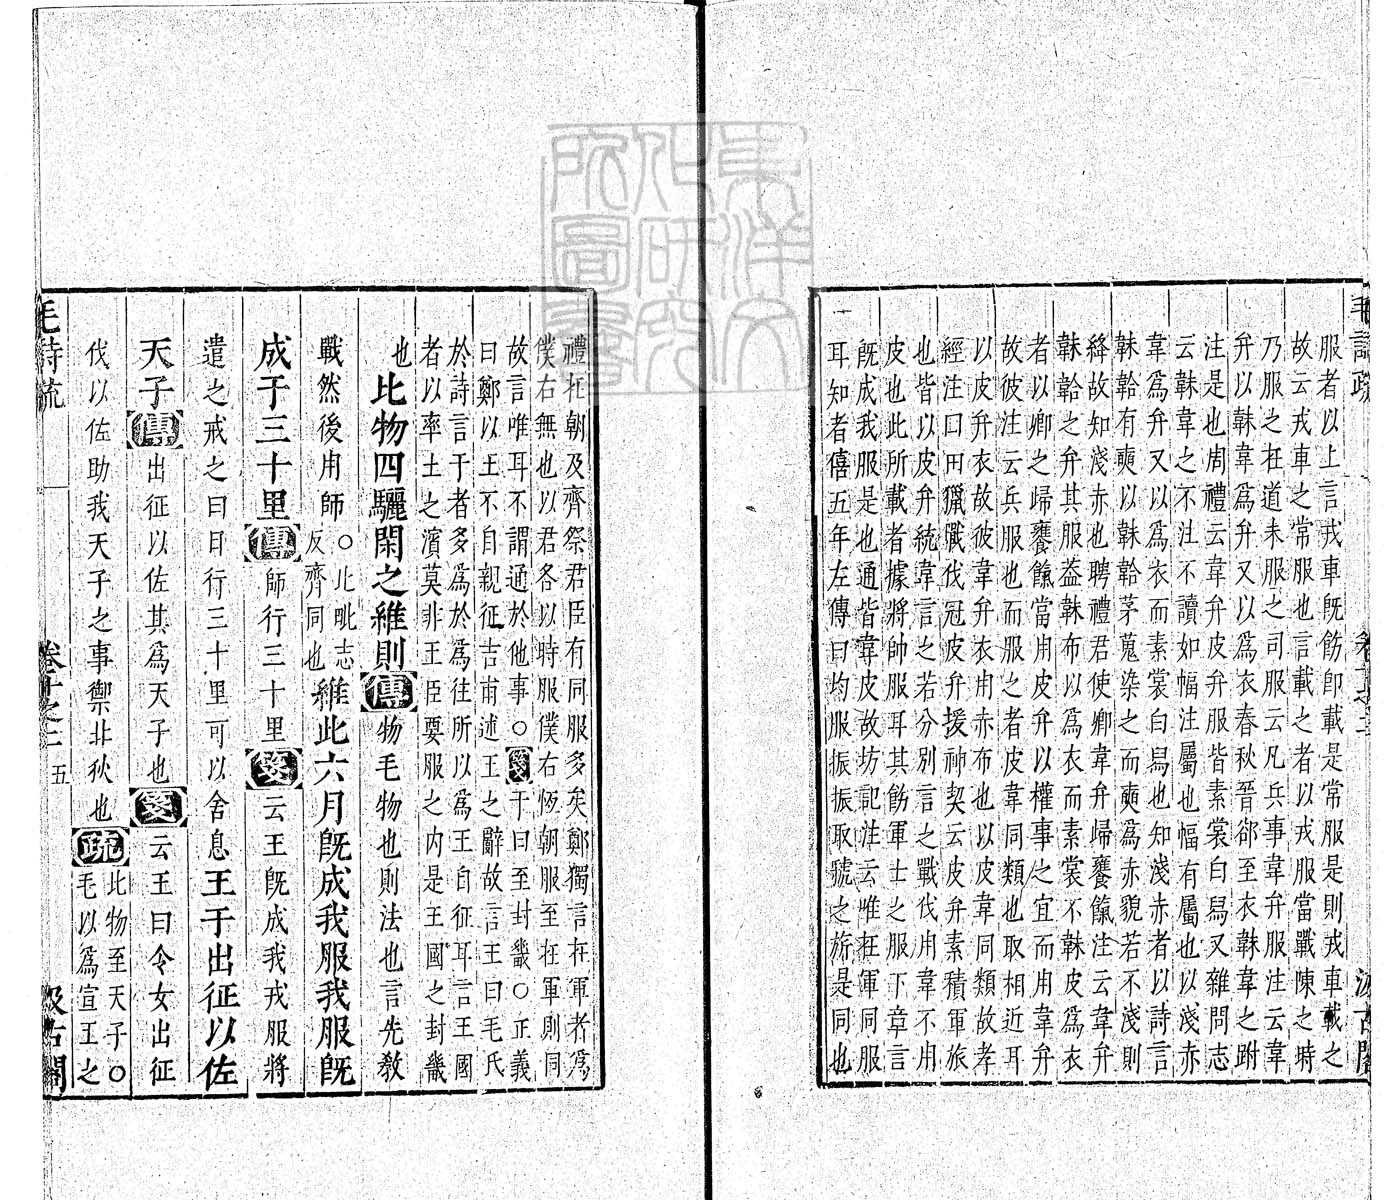 毛詩疏 卷十之二 汲古閣
服者以上言戎車既飭即載是常服是則戎車載之
故云戎車之常服也言載之者以戎服當戰陳之時
乃服之在道未服之司服云凡兵事韋弁服注云韋
弁以韎韋爲弁又以爲衣春秋晉郤至衣韎韋之跗
注是也周禮云韋弁皮弁服皆素裳白舄又雜問志
云韎韋之不注不讀如幅注屬也幅有屬也以淺赤
韋爲弁又以爲衣而素裳白舄也知淺赤者以詩言
韎韐有奭以韎韐茅蒐染之而奭爲赤貌若不淺則
絳故知淺赤也聘禮君使卿韋弁歸饔餼注云韋弁
韎韐之弁其服葢韎布以爲衣而素裳不韎皮爲衣
者以卿之歸饔餼當用皮弁以權事之宜而用韋弁
故彼注云兵服也而服之者皮韋同類也取相近耳
以皮弁衣故彼韋弁衣用赤布也以皮韋同類故孝
經注曰田獵戰伐冠皮弁援神契云皮弁素積軍旅
也皆以皮弁統韋言之若分別言之戰伐用韋不用
皮也此所載者據將帥服耳其飭軍士之服下章言
既成我服是也通皆韋皮故坊記注云唯在軍同服
耳知者僖五年左傳曰均服振振取虢之旂是同也
禮在朝及齊祭君臣有同服多矣鄭獨言在軍者爲
僕右無也以君各以時服僕右恆朝服至在軍則同
故言唯耳不謂通於他事○箋于曰至封畿○正義
曰鄭以王不自親征吉甫述王之辭故言王曰毛氏
於詩言于者多爲於爲往所以爲王自征耳言王國
者以率土之濱莫非王臣要服之内是王國之封畿
也
比物四驪閑之維則傳物毛物也則法也言先教
戰然後用師○比毗志反齊同也維此六月既成我服我服既
成于三十里傳師行三十里箋云王既成我戎服將
遣之戒之曰日行三十里可以舍息王于出征以佐
天子傳出征以佐其爲天子也箋云王曰令女出征
伐以佐助我天子之事禦北狄也疏比物至天子○毛以爲宣王之
毛詩疏 卷十之二 五 汲古閣
東洋文化研究所圖書